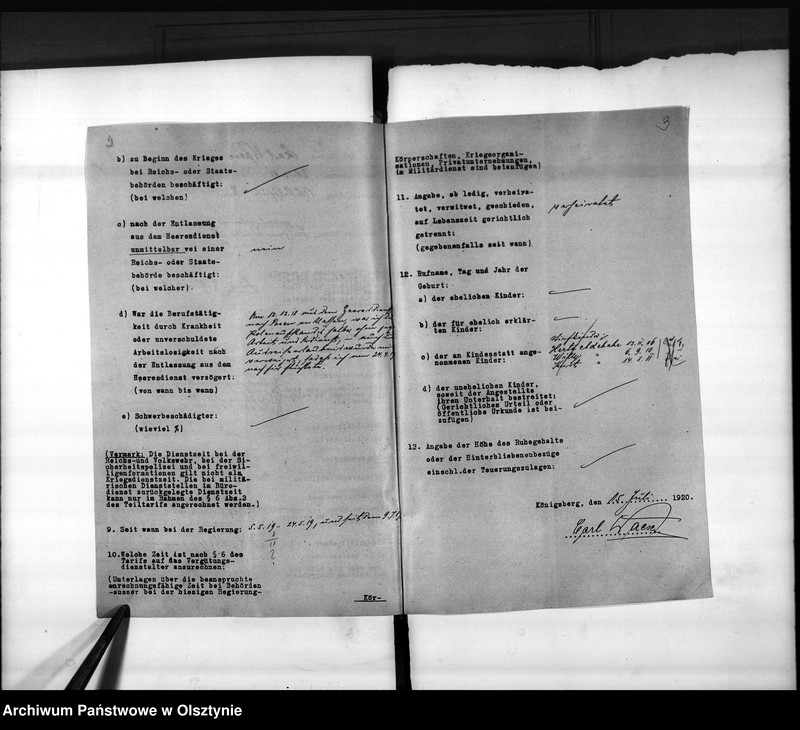 3
b) zu Beginn des Krieges
bei Reichs- oder Staats-
behörden beschäftigt:
(bei welchen)
c) nach der Entlassung
aus dem Heeresdienst
unmittelbar vei einer
Reichs- oder Staats-
behörde beschäftigt:
(bei welcher).
nein
d) War die Berufstätig-
keit durch Krankheit
oder unverschuldete
Arbeitslosigkeit nach
der Entlassung aus dem
Heeresdienst verzögert:
(von wann bis wann)
Am 12.12.18 aus dem Heeresdienst
nach Posen entlassen, war ich
e) Schwerbeschädigter:
(wieviel %)
(Vermerk: Die Dienstzeit bei der
Reichs-und Volkswehr, bei der Si-
cherheitspolizei und bei freiwil-
ligenformationen gilt nicht als
Kriegsdienstzeit. Die bei militä-
rischen Dienststellen im Büro-
dienst zurückgelegte Dienstzeit
kann nur im Rahmen des § 6 Abs.3
des Teiltarifs angerechnet werden.)
9. Seit wann bei der Regierung: 5.5.19 - 24.5.19, und seit dem
10.Welche Zeit ist nach § 6 des
Tarifs auf das Vergütungs-
dienstalter anzurechnen:
(Unterlagen über die beanspruchte
anrechnungsfähige Zeit bei Behörden
-ausser bei der hiesigen Regierung-
Kör-
3
Körperschaften, Kriegsorgani-
sationen, Privatunternehmungen,
im Militärdienst sind beizufügen)
11. Angabe, ob ledig, verheira-
tet, verwitwet, geschieden,
auf Lebenszeit gerichtlich
getrennt:
(gegebenenfalls seit wann)
verheiratet
12. Rufname, Tag und Jahr der
Geburt:
a) der ehelichen Kinder:
b) der für ehelich erklär-
ten Kinder:
c) der an Kindesstatt ange-
nommenen Kinder:
d) der unehelichen Kinder,
soweit der Angestellte
ihren Unterhalt bestreitet:
(Gerichtliches Urteil oder
öffentliche Urkunde ist bei-
zufügen)
13. Angabe der Höhe des Ruhegehalts
oder der Hinterbliebenenbezüge
einschl.der Teuerungszulagen:
Königsberg, den 15. Juli 1920.
Carl
Archiwum Państwowe w Olsztynie